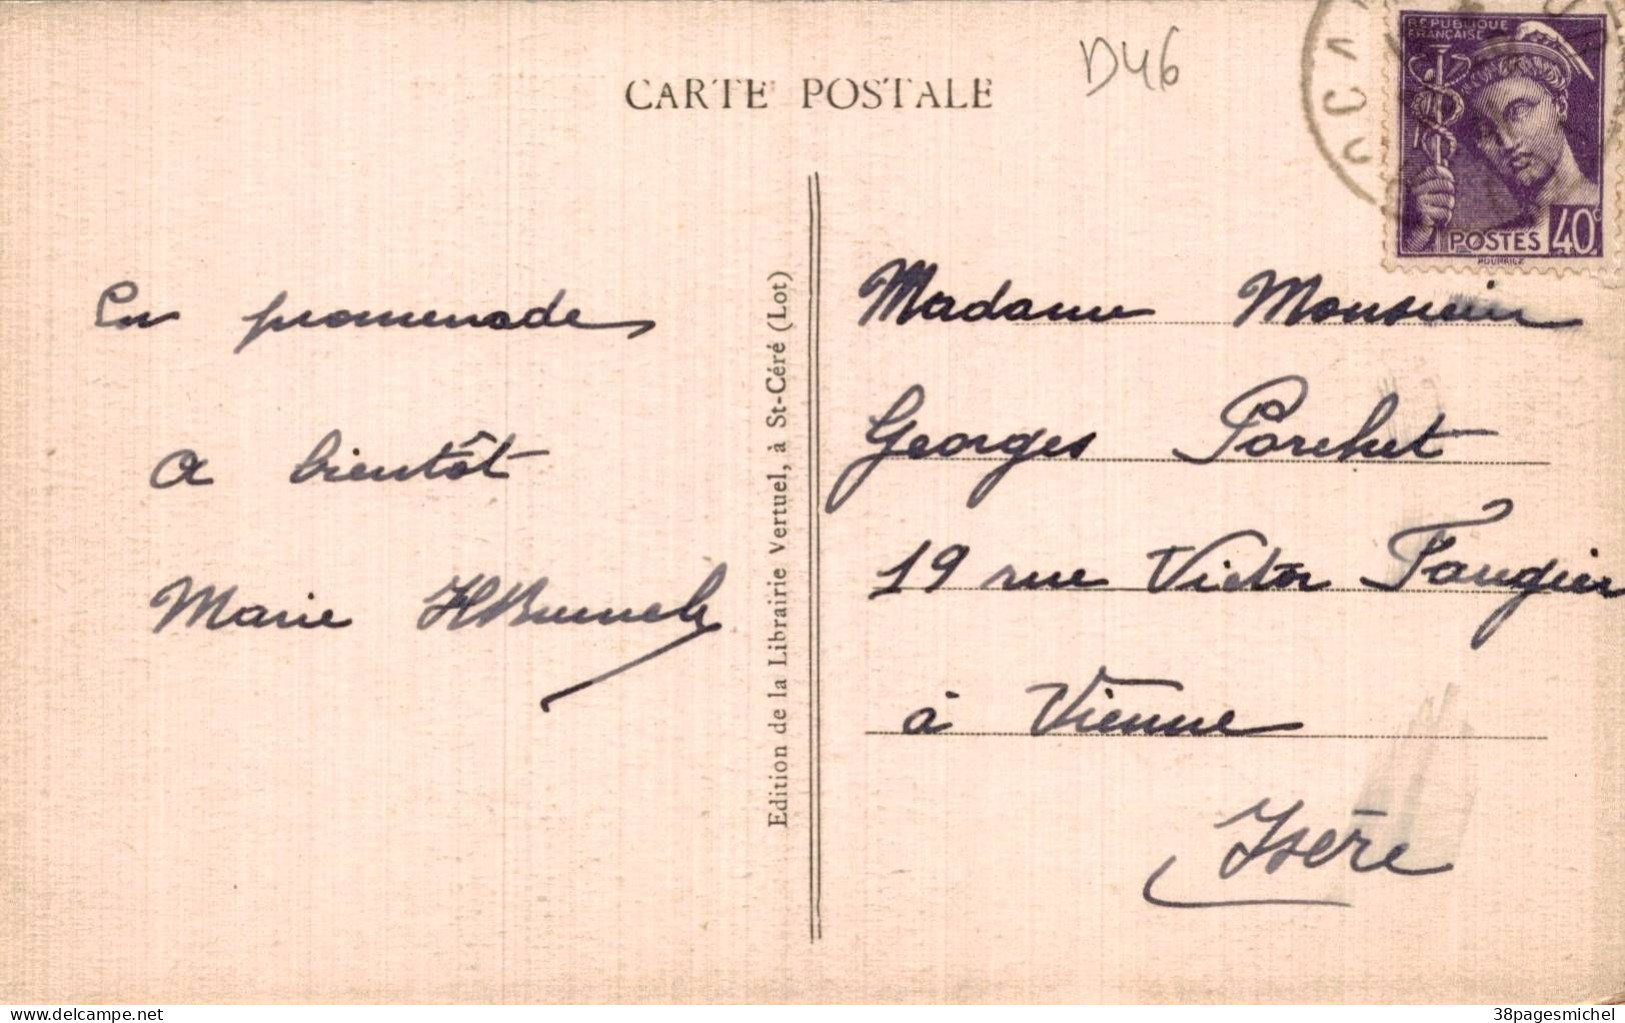 CARTE POSTALE
D46
REPUBLIQUE
FRANÇAISE
POSTES 40c
En promenade
A bientôt
Marie
Edition de la Librairie Vertuel, à St-Céré (Lot)
Madame Monsieur
Georges Porchet
19 rue Victor Faugier
à Vienne
Isère
38pagesmichel